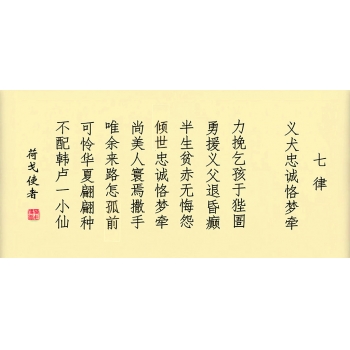 七律
义犬忠诚恪梦牵
力挽乞孩于狴圄
勇援义父退昏癫
半生贫赤无悔怨
倾世忠诚恪梦牵
尚美人寰焉撒手
唯余来路怎孤前
可怜华夏翩翩种
不配韩卢一小仙
荷戈使者